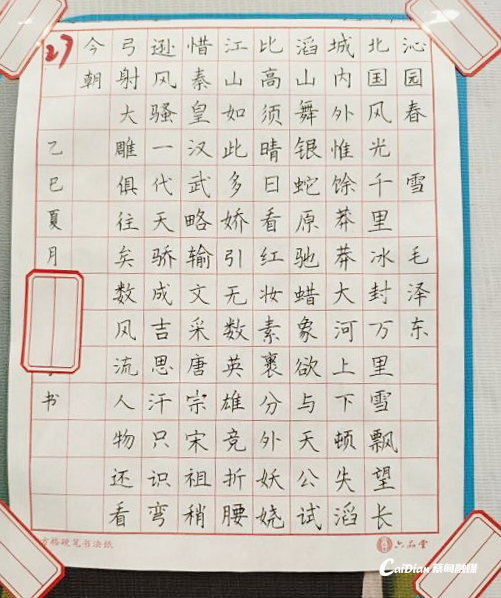 沁园春 雪 毛泽东
北国风光千里冰封万里雪飘望长
城内外惟馀莽莽大河上下顿失滔
滔山舞银蛇原驰蜡象欲与天公试
比高须晴日看红妆素裹分外妖娆
江山如此多娇引无数英雄竞折腰
惜秦皇汉武略输文采唐宗宋祖稍
逊风骚一代天骄成吉思汗只识弯
弓射大雕俱往矣数风流人物还看
今朝
27
乙巳夏月
书
方格硬笔书法纸
六品堂
CaiDian 蔡甸融媒